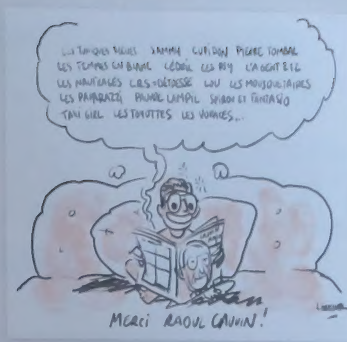 LES TUNIQUES BLEUES SAMMY CUPIDON PIERRE TOMBAL
LES FEMMES EN BLANC CÉDRIC LES PSY L'AGENT 212
LES NAUFRAGÉS C.R.S = DÉTRESSE LOU LES MOUSQUETAIRES
LES PAPARAZZI PAUVRE LAMPIL SPIROU ET FANTASIO
TAXI GIRL LES TOYOTTES LES VORACES...
MERCI RAOUL CAUVIN !